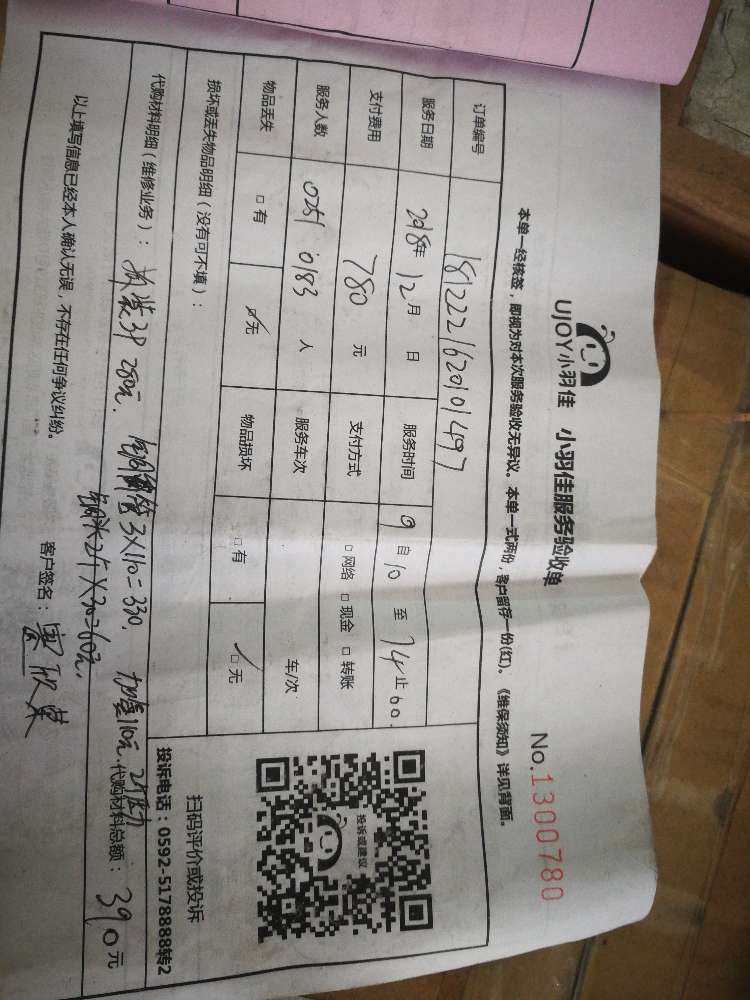 UJOY小羽佳 小羽佳服务验收单
No.1300780
本单一经核签，即视为对本次服务验收无异议。本单一式两份，客户留存一份(红)。《维保须知》详见背面。
订单编号 1812221620101497
服务日期 2018年 12月 日 服务时间 9自10 至 14止60.
支付费用 780 元 支付方式 □网络 □现金 □转账
服务人数 0251 0183 人 服务车次 车/次
物品丢失 □有 ☑无 物品损坏 □有 ☑无
损坏或丢失物品明细（没有可不填）：
代购材料明细（维修业务）： 拆装3P 280元. 铜管3×110=330. 加氟110元.
2×30=60元.
代购材料总额： 390元
以上填写信息已经本人确认无误，不存在任何争议纠纷。
客户签名：
投诉或建议
扫码评价或投诉
投诉电话：0592-5178888转2